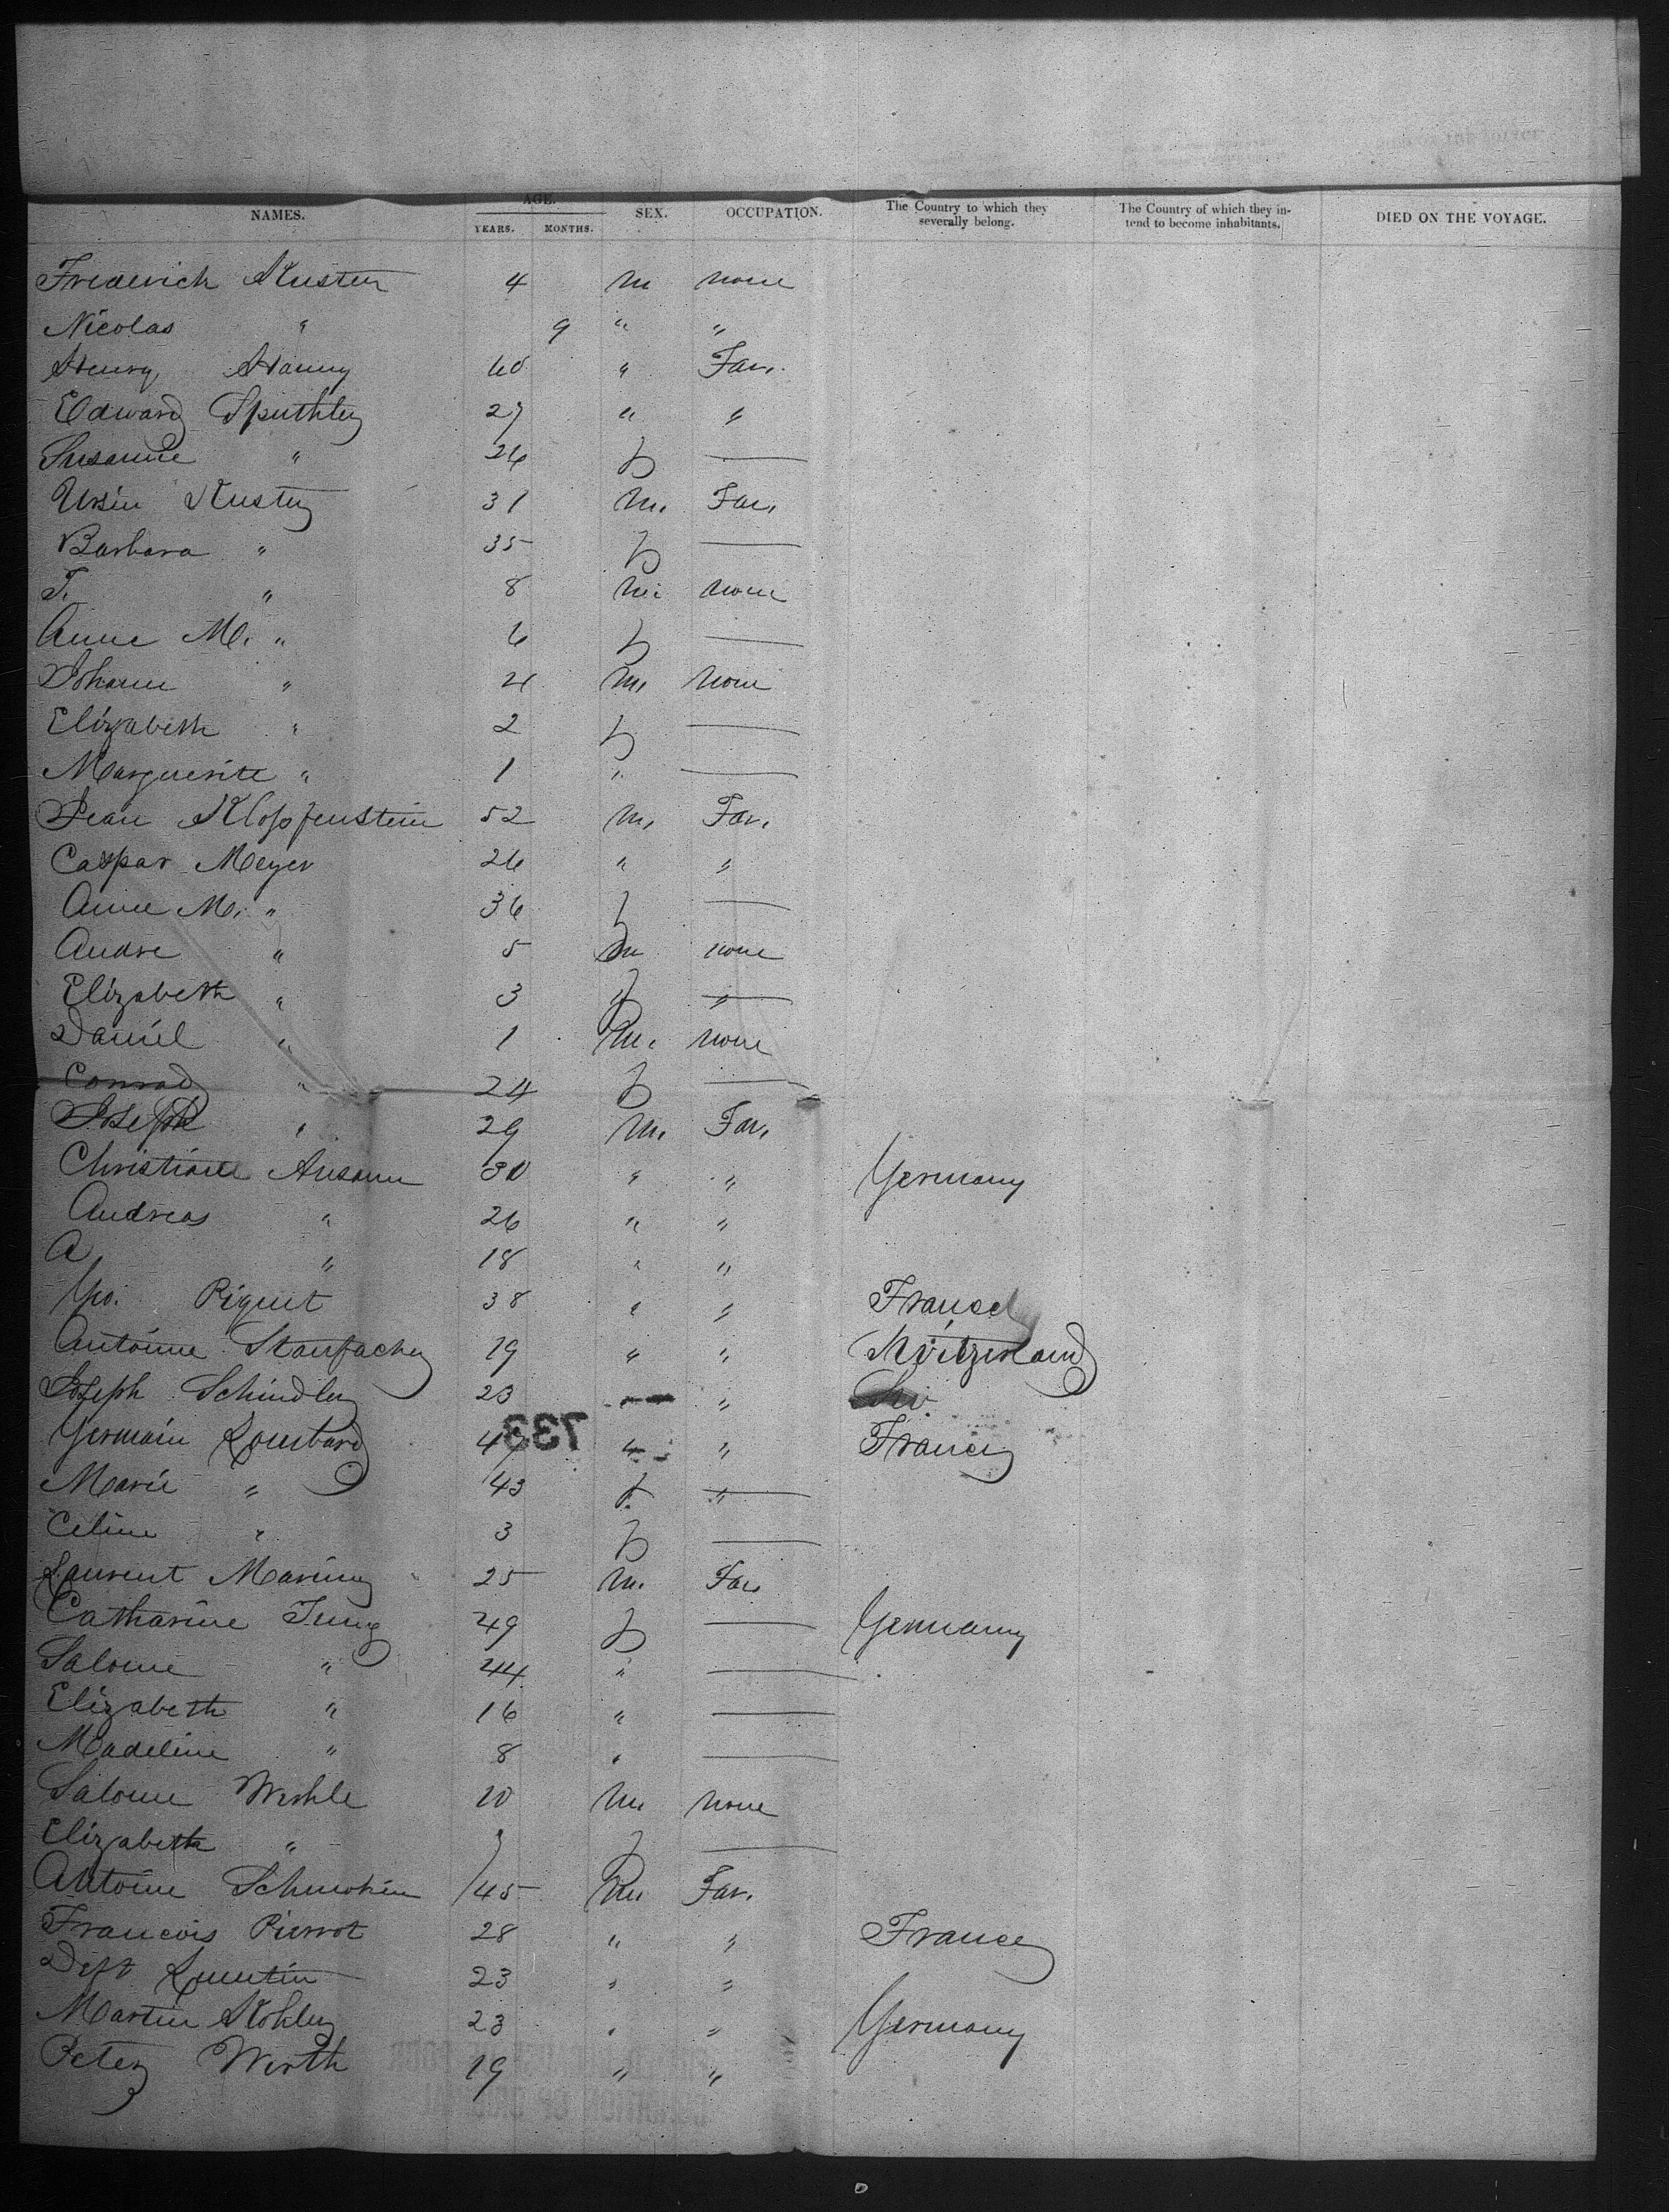 NAMES. AGE. YEARS. MONTHS. SEX. OCCUPATION. The Country to which they severally belong. The Country of which they intend to become inhabitants. DIED ON THE VOYAGE.
Frederich Kuster 4 m none
Nicolas " 9 " "
Henry Hanny 60 " Far.
Edward Sputhler 27 " "
Susanne " 26 f —
Ursin Kuster 31 m. Far.
Barbara " 35 f —
J. " 8 m none
Anne M. " 6 f —
Johann " 4 m. none
Elizabeth " 2 f —
Marguerite " 1 " —
Jean Klopfenstein 52 m. Far.
Caspar Meyer 26 " "
Anne M. " 36 f —
Andre " 5 m none
Elizabeth " 3 f —
Daniel " 1 m. none
Conrad " 24 f —
Joseph " 29 m. Far.
Christiane 30 " " Germany
Andreas " 26 " "
A " 18 " "
Piquet 38 " " France
Antoine Staufacher 19 " " Switzerland
Joseph Schindler 23 "
Germain Lombard 47 " " France
733
Marie " 43 f —
Celine " 3 f —
Laurent 25 m. Far.
Catharine Jung 49 f — Germany
Salome " 44 " —
Elizabeth " 16 " —
Madeline " 8 " —
Salome 10 m. none
Elizabeth " 7 f —
Antoine 45 m Far.
Francois Pierrot 28 " " France
23 " "
Martin Kohler 23 " " Germany
Peter Werth 19 " "